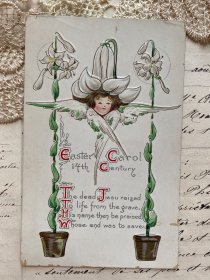 Easter Carol
14th Century
The dead Jesu raized
To life from the grave.
His name then be praised
Whose end was to save.